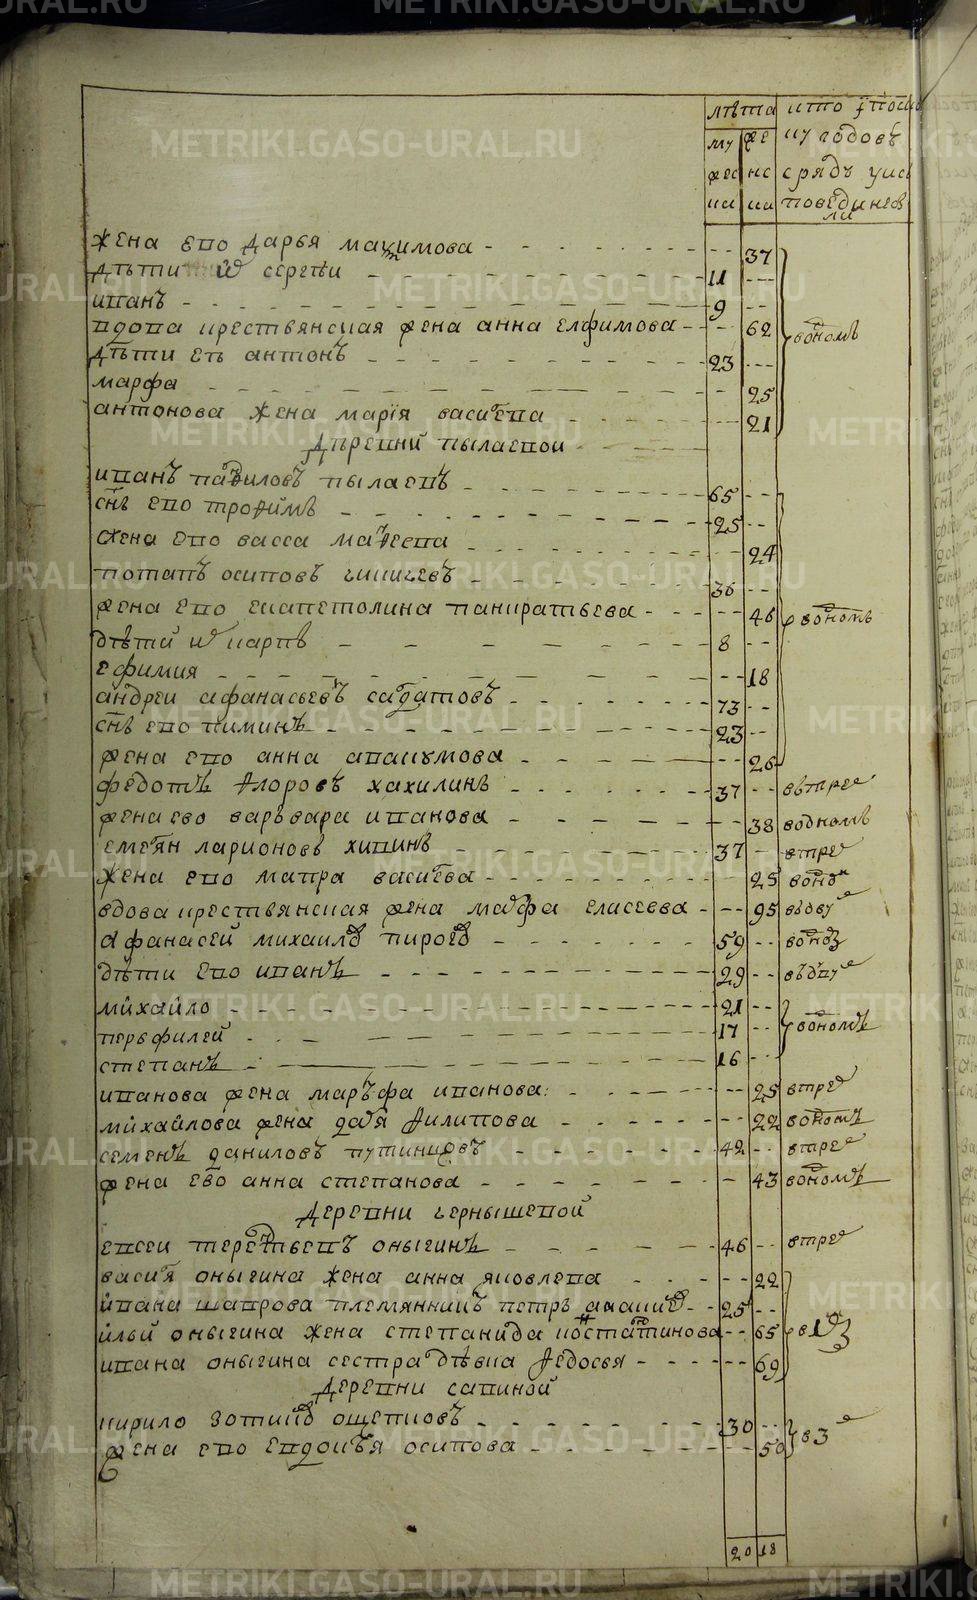 METRIKI.GASO-URAL.RU
лѣта
муческ
женск
кто
коих годовъ
сряду у исповеди не были
жена ево дарья максимова 37
дѣти их сергѣи 11
иванъ 9
вдова крестьянская жена анна елфимова 62
дѣти еѣ антонъ 23
марфа 25
антонова жена марія василева 21
водномъ
Деревни пылаевои
иванъ павиловъ пылаевъ 65
снъ ево трофимъ 25
жена ево васса матвеева 24
потапъ осиповъ 36
жена ево екапетолина панкратьева 46
дѣти их карпъ 8
ефимия 18
андреи афанасьевъ салдатовъ 73
снъ ево пиминъ 23
жена ево анна абакумова 26
водномъ
федотъ флоровъ хахилинъ 37 втрех
жена ево варъвара иванова 38 водномъ
емелян ларионовъ хипинъ 37 втрех
жена ево мавра василева 25 водном
вдова крестьянская жена марфа елисеева 95 вдву
афанасей михаилов пиров 59 водном
дѣти ево иванъ 29 вдву
михаило 21
перфилей 17
степанъ 16
водномъ
иванова жена маръфа иванова 25 втрех
михаилова жена дарья филипова 22 водномъ
семенъ даниловъ путинцовъ 42 втрех
жена ево анна степанова 43 водномъ
Деревни чернышевой
евсеи терентьевъ онычинъ 46 втрех
василя онычина жена анна яковлева 22
ивана шапрова племянникъ петръ 25
ильи онычина жена степанида костантинова 65
ивана онычина сестра дѣвка федосья 69
в 1
Деревни савиной
кирило зотиив ощепковъ 30
жена ево евдокъя осипова 50
в 3
20 18